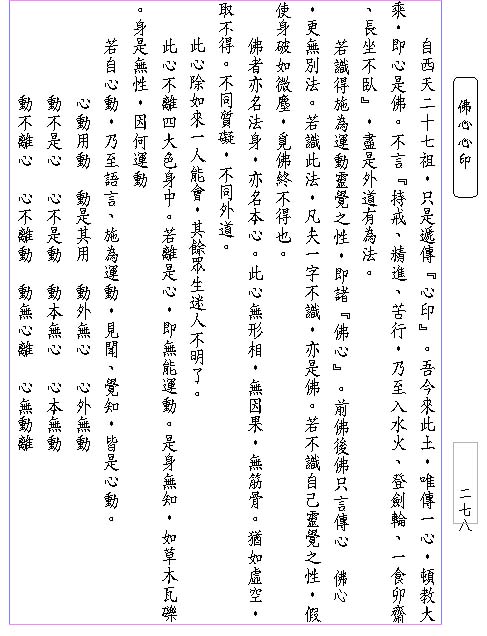 佛心心印
自西天二十七祖，只是遞傳『心印』。吾今來此土，唯傳一心，頓教大
乘，即心是佛。不言『持戒、精進、苦行，乃至入水火、登劍輪、一食卯齋
、長坐不臥』，盡是外道有為法。
若識得施為運動靈覺之性，即諸『佛心』。前佛後佛只言傳心　佛心
，更無別法。若識此法，凡夫一字不識，亦是佛。若不識自己靈覺之性，假
使身破如微塵，覓佛終不得也。
佛者亦名法身，亦名本心。此心無形相，無因果，無筋骨。猶如虛空，
取不得。不同質礙，不同外道。
此心除如來一人能會，其餘眾生迷人不明了。
此心不離四大色身中。若離是心，即無能運動。是身無知，如草木瓦礫
。身是無性，因何運動
若自心動，乃至語言、施為運動，見聞、覺知，皆是心動。
心動用動　動是其用　動外無心　心外無動
動不是心　心不是動　動本無心　心本無動
動不離心　心不離動　動無心離　心無動離
二七八